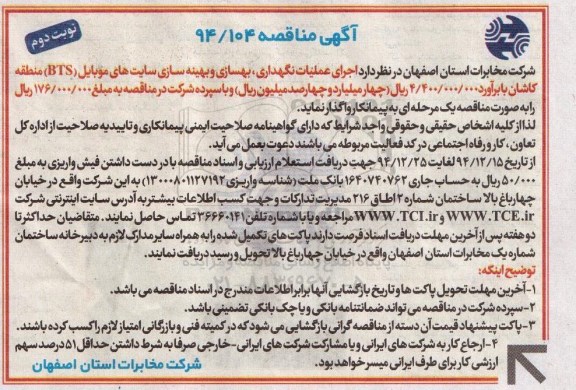 آگهی مناقصه ۹۴/۱۰۴
نوبت دوم
شرکت مخابرات استان اصفهان در نظر دارد اجرای عملیات نگهداری ، بهسازی و بهینه سازی سایت های موبایل (BTS) منطقه
کاشان با برآورد ۴/۴۰۰/۰۰۰/۰۰۰ ریال (چهار میلیارد و چهارصد میلیون ریال) و با سپرده شرکت در مناقصه به مبلغ ۱۷۶/۰۰۰/۰۰۰ ریال
را به صورت مناقصه یک مرحله ای به پیمانکار واگذار نماید.
لذا از کلیه اشخاص حقیقی و حقوقی واجد شرایط که دارای گواهینامه صلاحیت ایمنی پیمانکاری و تاییدیه صلاحیت از اداره کل
تعاون ، کار و رفاه اجتماعی در کد فعالیت مربوطه می باشند دعوت بعمل می آید.
از تاریخ ۹۴/۱۲/۱۵ لغایت ۹۴/۱۲/۲۵ جهت دریافت استعلام ارزیابی و اسناد مناقصه با در دست داشتن فیش واریزی به مبلغ
۵۰/۰۰۰ ریال به حساب جاری ۱۶۴۰۷۴۰۷۶۲ بانک ملت (شناسه واریزی ۱۳۰۰۰۸۰۱۱۲۷۱۹۲) به این شرکت واقع در خیابان
چهارباغ بالا ساختمان شماره ۲ اطاق ۲۱۶ مدیریت تدارکات و جهت کسب اطلاعات بیشتر به آدرس سایت اینترنتی شرکت
WWW.TCE.ir و WWW.TCI.ir مراجعه و یا با شماره تلفن ۳۶۶۶۰۱۴۱ تماس حاصل نمایند. متقاضیان حداکثر تا
دو هفته پس از آخرین مهلت دریافت اسناد فرصت دارند پاکت های تکمیل شده را به همراه سایر مدارک لازم به دبیرخانه ساختمان
شماره یک مخابرات استان اصفهان واقع در خیابان چهارباغ بالا تحویل و رسید دریافت نمایند.
توضیح اینکه:
۱-آخرین مهلت تحویل پاکت ها و تاریخ بازگشایی آنها برابر اطلاعات مندرج در اسناد مناقصه می باشد.
۲-سپرده شرکت در مناقصه می تواند ضمانتنامه بانکی و یا چک بانکی تضمینی باشد.
۳-پاکت پیشنهاد قیمت آن دسته از مناقصه گرانی بازگشایی می شود که در کمیته فنی و بازرگانی امتیاز لازم را کسب کرده باشند.
۴-ارجاع کار به شرکت های ایرانی و یا مشارکت شرکت های ایرانی-خارجی صرفا به شرط داشتن حداقل ۵۱ درصد سهم
ارزشی کار برای طرف ایرانی میسر خواهد بود.
شرکت مخابرات استان اصفهان